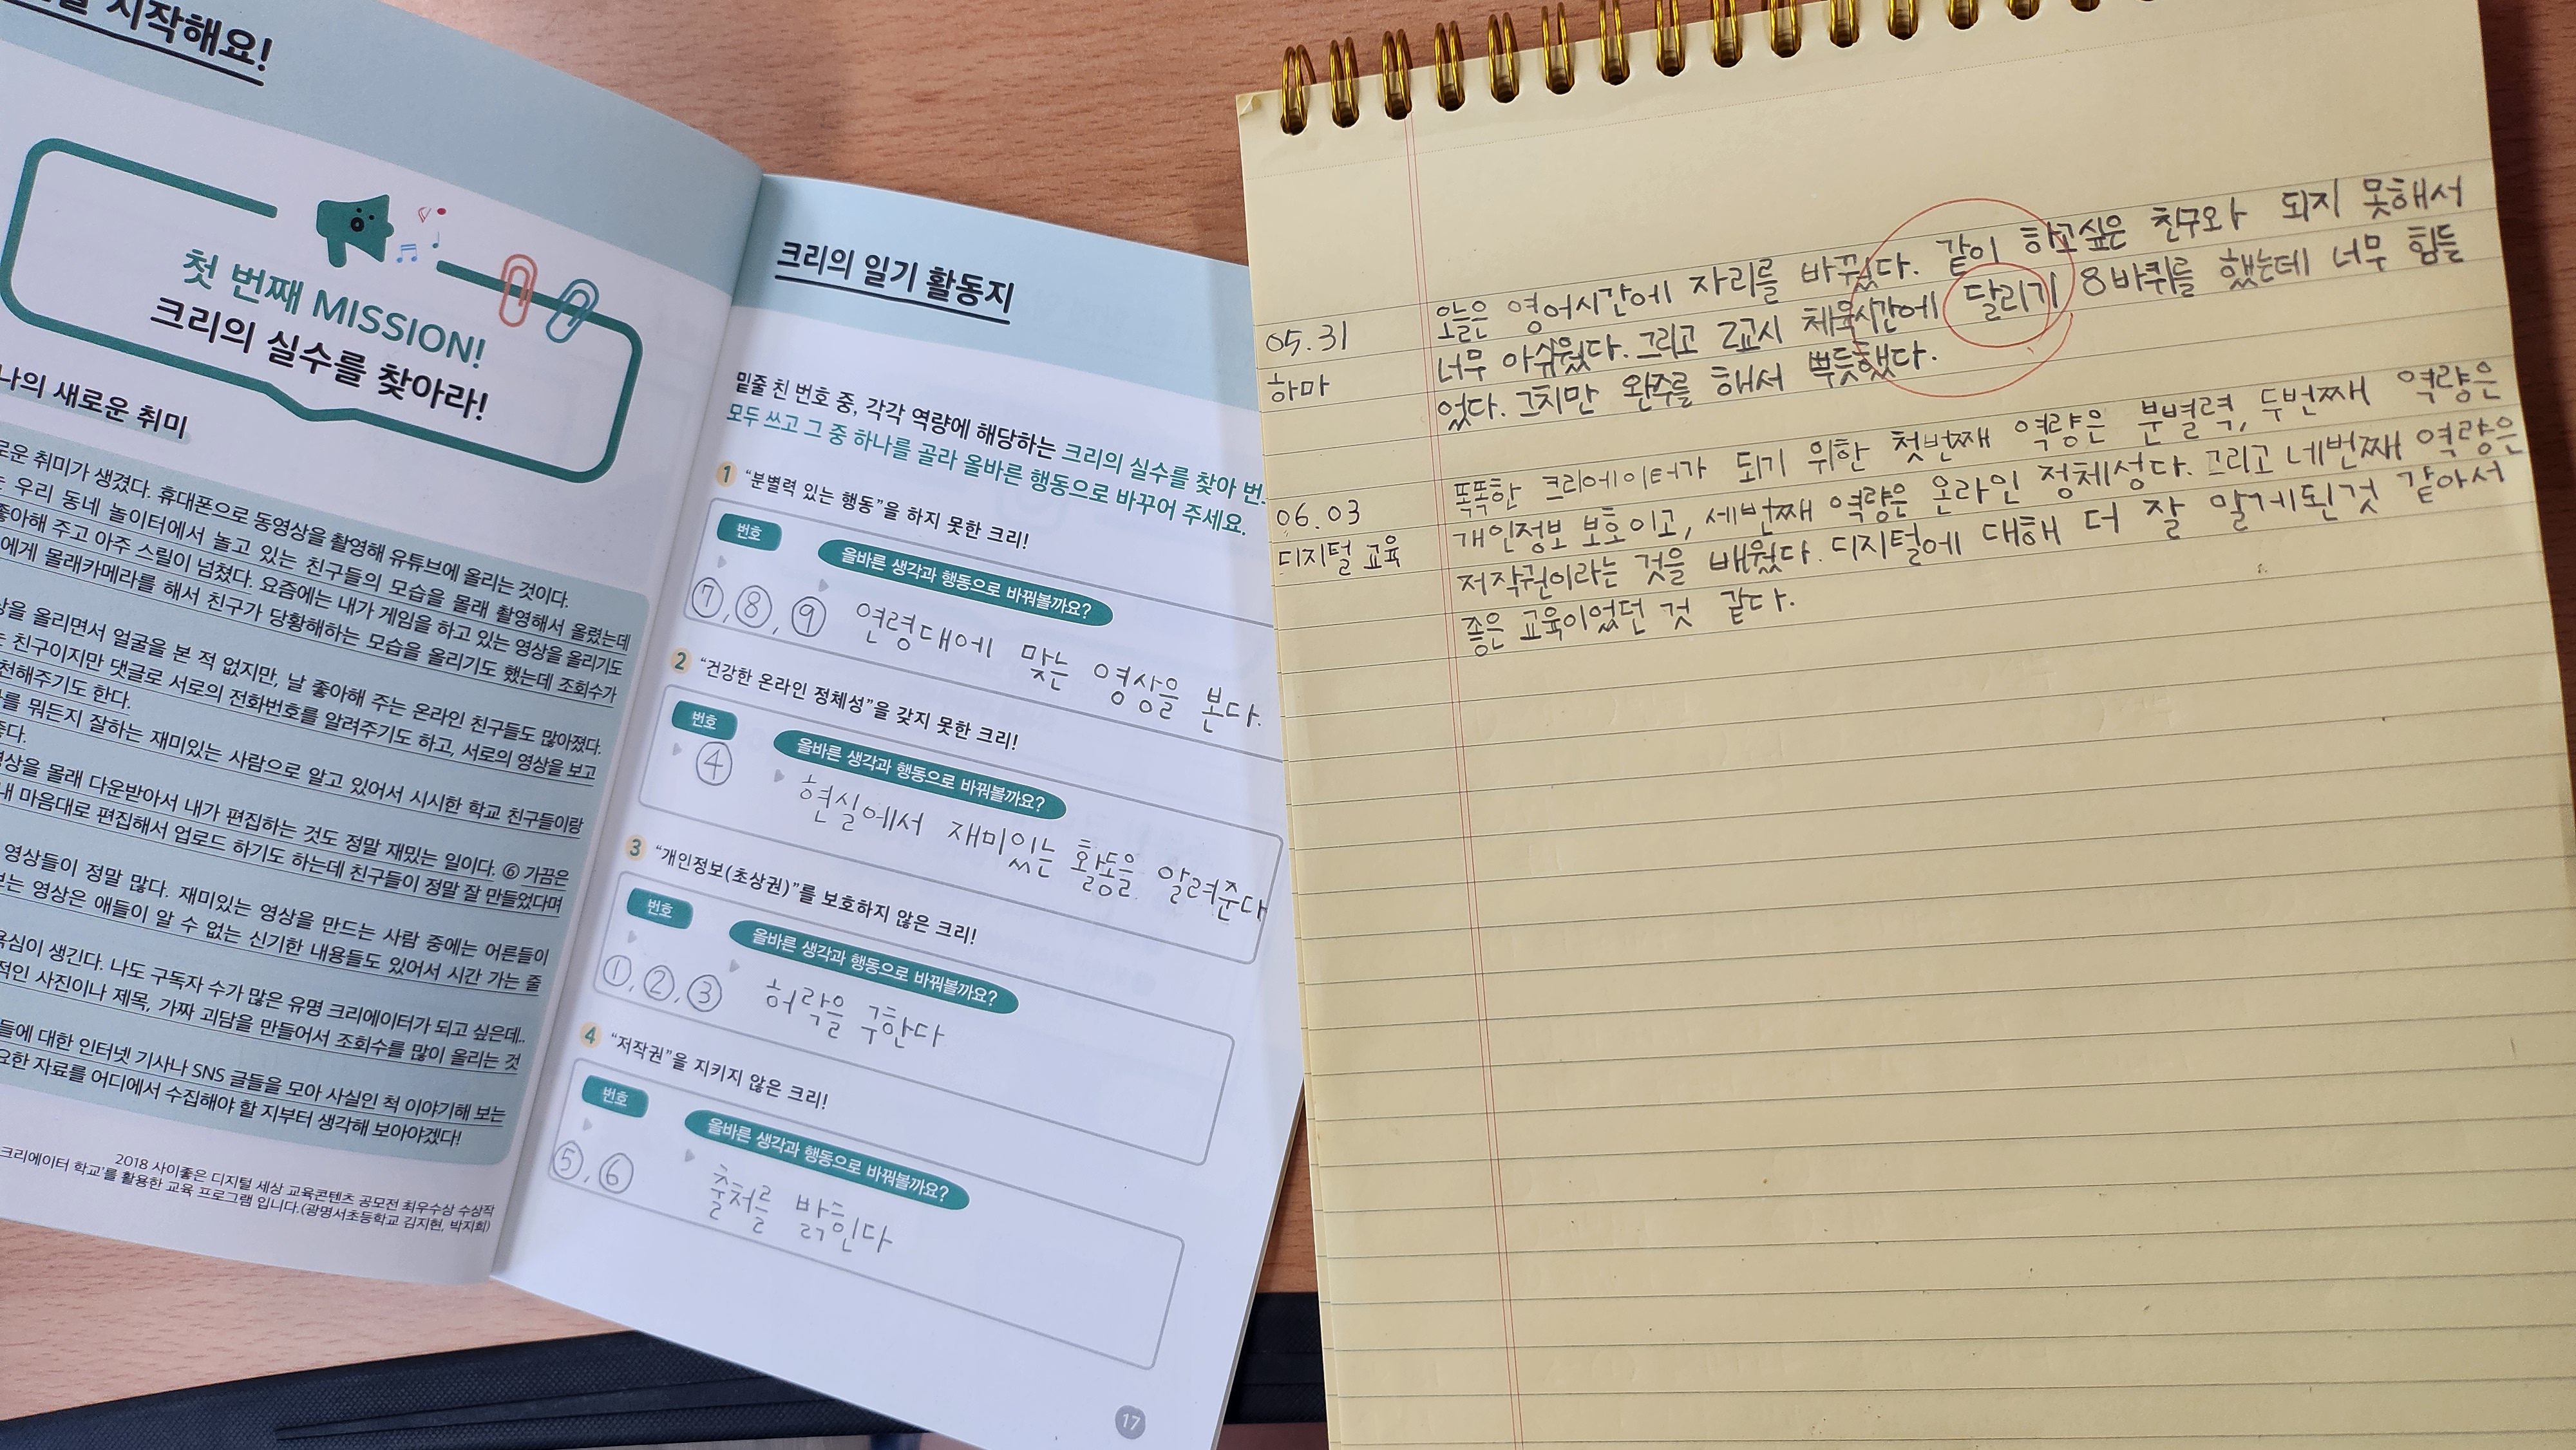 시작해요!
첫 번째 MISSION!
크리의 실수를 찾아라!
나의 새로운 취미
취미가 생겼다. 휴대폰으로 동영상을 촬영해 유튜브에 올리는 것이다.
우리 동네 놀이터에서 놀고 있는 친구들의 모습을 몰래 촬영해서 올렸는데
좋아해 주고 아주 스릴이 넘쳤다. 요즘에는 내가 게임을 하고 있는 영상을 올리기도
에게 몰래카메라를 해서 친구가 당황해하는 모습을 올리기도 했는데 조회수가
올리면서 얼굴을 본 적 없지만, 날 좋아해 주는 온라인 친구들도 많아졌다.
친구이지만 댓글로 서로의 전화번호를 알려주기도 하고, 서로의 영상을 보고
천해주기도 한다.
를 뭐든지 잘하는 재미있는 사람으로 알고 있어서 시시한 학교 친구들이랑
몰래 다운받아서 내가 편집하는 것도 정말 재밌는 일이다. ⑥ 가끔은
내 마음대로 편집해서 업로드 하기도 하는데 친구들이 정말 잘 만들었다며
영상들이 정말 많다. 재미있는 영상을 만드는 사람 중에는 어른들이
보는 영상은 애들이 알 수 없는 신기한 내용들도 있어서 시간 가는 줄
욕심이 생긴다. 나도 구독자 수가 많은 유명 크리에이터가 되고 싶은데..
적인 사진이나 제목, 가짜 괴담을 만들어서 조회수를 많이 올리는 것
들에 대한 인터넷 기사나 SNS 글들을 모아 사실인 척 이야기해 보는
자료를 어디에서 수집해야 할 지부터 생각해 보아야겠다!
2018 사이좋은 디지털 세상 교육콘텐츠 공모전 최우수상 수상작
크리에이터 학교'를 활용한 교육 프로그램 입니다.(광명서초등학교 김지현, 박지희)
크리의 일기 활동지
밑줄 친 번호 중, 각각 역량에 해당하는 크리의 실수를 찾아
모두 쓰고 그 중 하나를 골라 올바른 행동으로 바꾸어 주세요.
1 “분별력 있는 행동”을 하지 못한 크리!
번호
올바른 생각과 행동으로 바꿔볼까요?
⑦, ⑧, ⑨ 연령대에 맞는 영상을 본다.
2 “건강한 온라인 정체성”을 갖지 못한 크리!
번호
올바른 생각과 행동으로 바꿔볼까요?
④ 현실에서 재미있는 활동을 알려준다
3 “개인정보(초상권)”를 보호하지 않은 크리!
번호
올바른 생각과 행동으로 바꿔볼까요?
①, ②, ③ 허락을 구한다
4 “저작권”을 지키지 않은 크리!
번호
올바른 생각과 행동으로 바꿔볼까요?
⑤, ⑥ 출처를 밝힌다
17
05.31
하마
오늘은 영어시간에 자리를 바꿨다. 같이 하고싶은 친구와 되지 못해서
너무 아쉬웠다. 그리고 2교시 체육시간에 달리기 8바퀴를 했는데 너무 힘들
었다. 그치만 완주를 해서 뿌듯했다.
06.03
디지털 교육
똑똑한 크리에이터가 되기 위한 첫번째 역량은 분별력, 두번째 역량은
개인정보 보호이고, 세번째 역량은 온라인 정체성다. 그리고 네번째 역량은
저작권이라는 것을 배웠다. 디지털에 대해 더 잘 알게된것 같아서
좋은 교육이었던 것 같다.